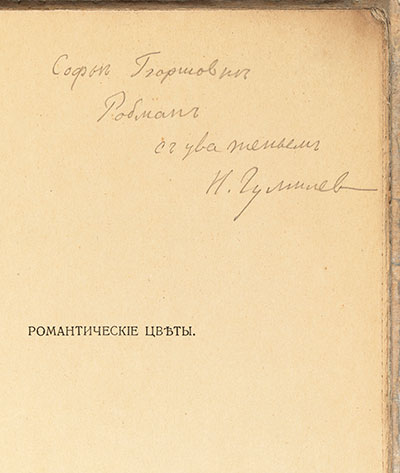 Софьѣ
Робманъ
съ уваженьемъ
Н. Гумилев
РОМАНТИЧЕСКІЕ ЦВѢТЫ.